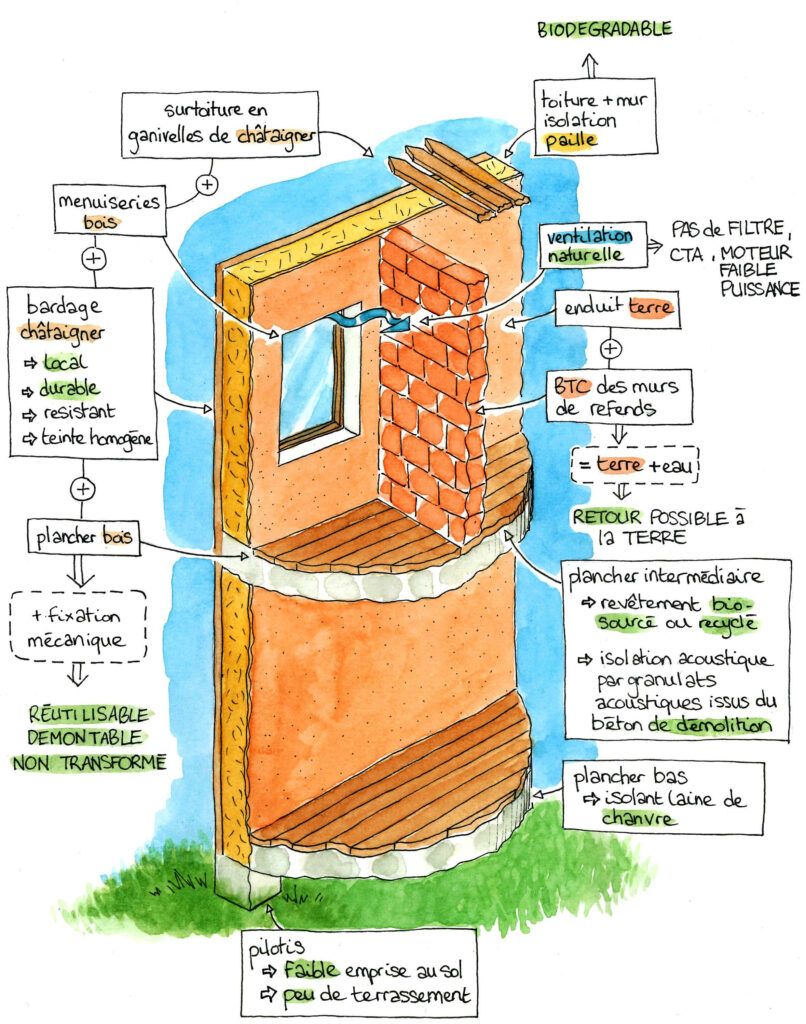 BIODEGRADABLE
toiture + mur
isolation
paille
surtoiture en
ganivelles de châtaigner
menuiseries
bois
+
+
bardage
châtaigner
⇒ local
⇒ durable
⇒ resistant
⇒ teinte homogène
+
plancher bois
+ fixation
mécanique
RÉUTILISABLE
DEMONTABLE
NON TRANSFORMÉ
ventilation
naturelle
PAS de FILTRE,
CTA, MOTEUR
FAIBLE
PUISSANCE
enduit terre
+
BTC des murs
de refends
= terre + eau
RETOUR POSSIBLE à
la TERRE
plancher intermédiaire
⇒ revêtement bio-
sourcé ou recyclé
⇒ isolation acoustique
par granulats
acoustiques issus du
béton de démolition
plancher bas
⇒ isolant laine de
chanvre
pilotis
⇒ Faible emprise au sol
⇒ peu de terrassement